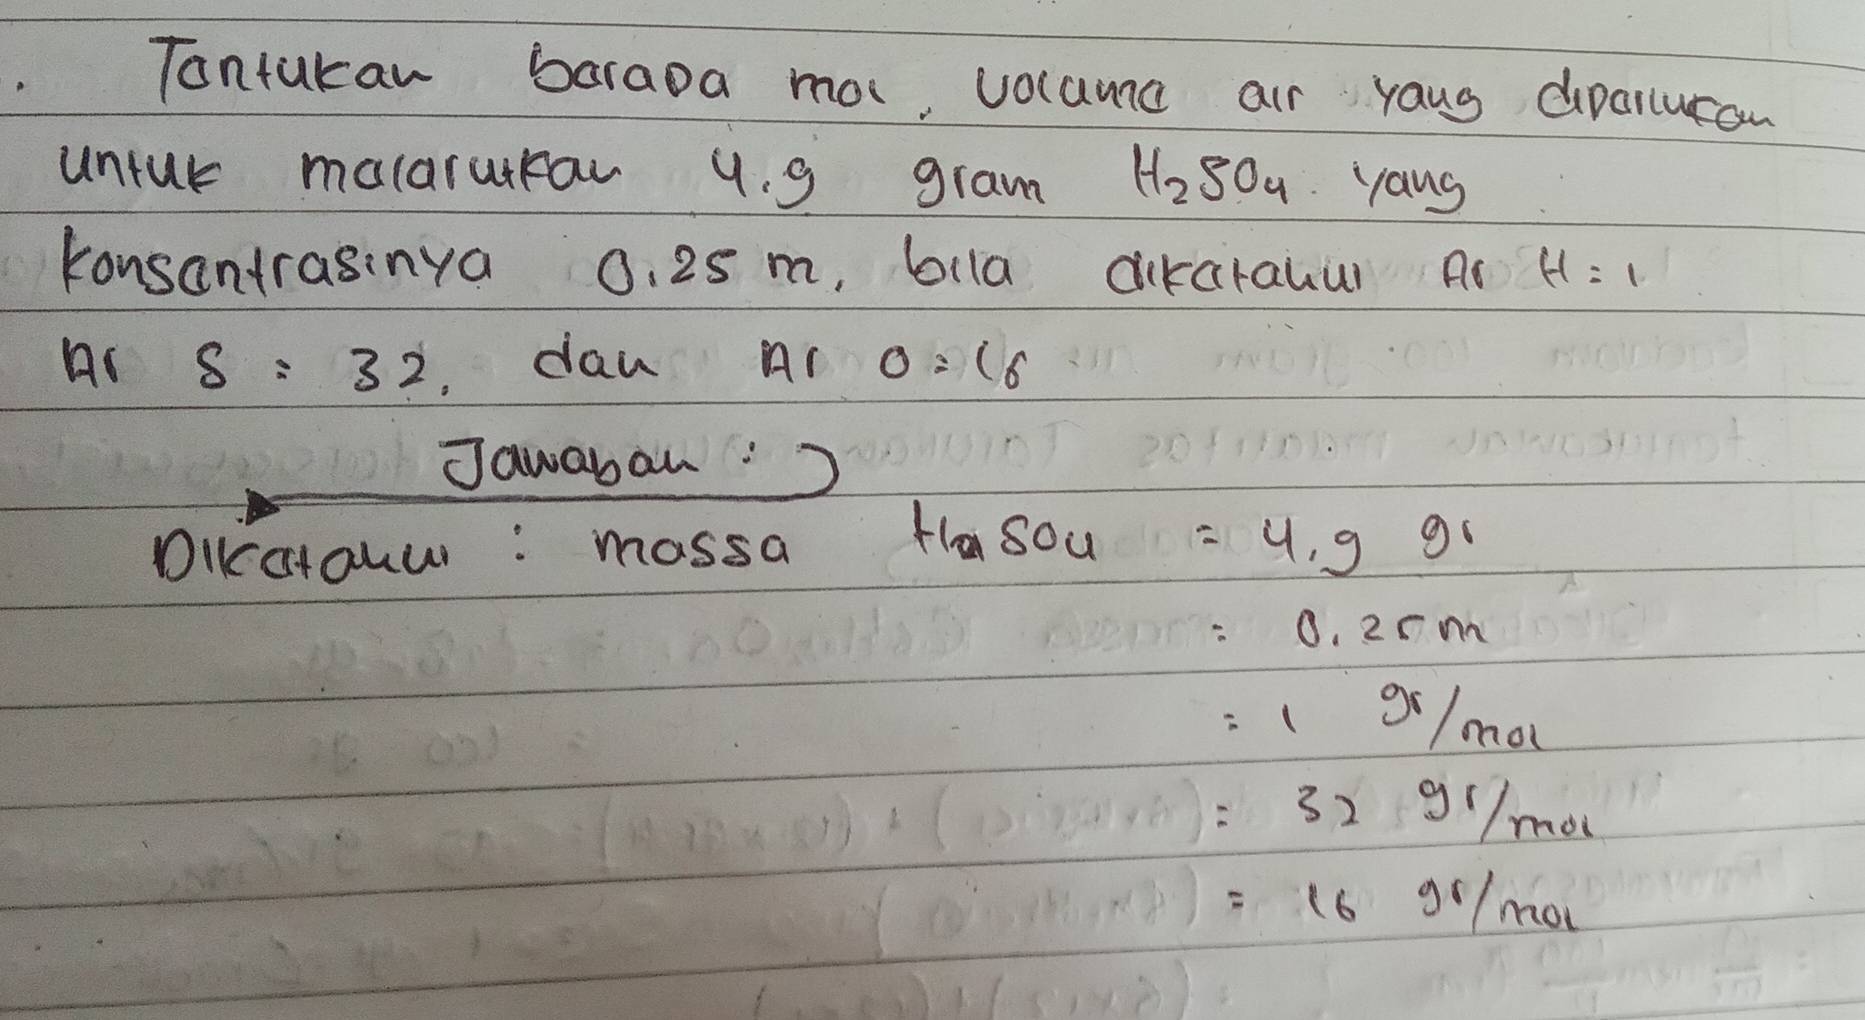 . Tentukan berapa mol, volume air yang diperlukan
untuk melarutkan 4,9 gram H2SO4 yang
konsentrasinya 0,25 m, bila diketahui Ar H = 1
Ar S = 32, dan Ar O = 16
Jawaban :
Diketahui : massa H2SO4 = 4,9 gr
= 0,25 m
= 1 gr/mol
= 32 gr/mol
= 16 gr/mol